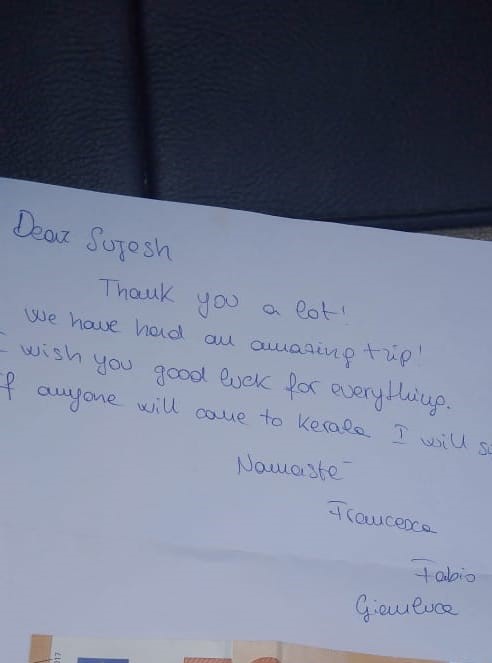 Dear Sujesh
Thank you a lot!
We have had an amazing trip!
I wish you good luck for everything.
If anyone will come to Kerala I will
Namasté
Francesca
Fabio
Gianluca